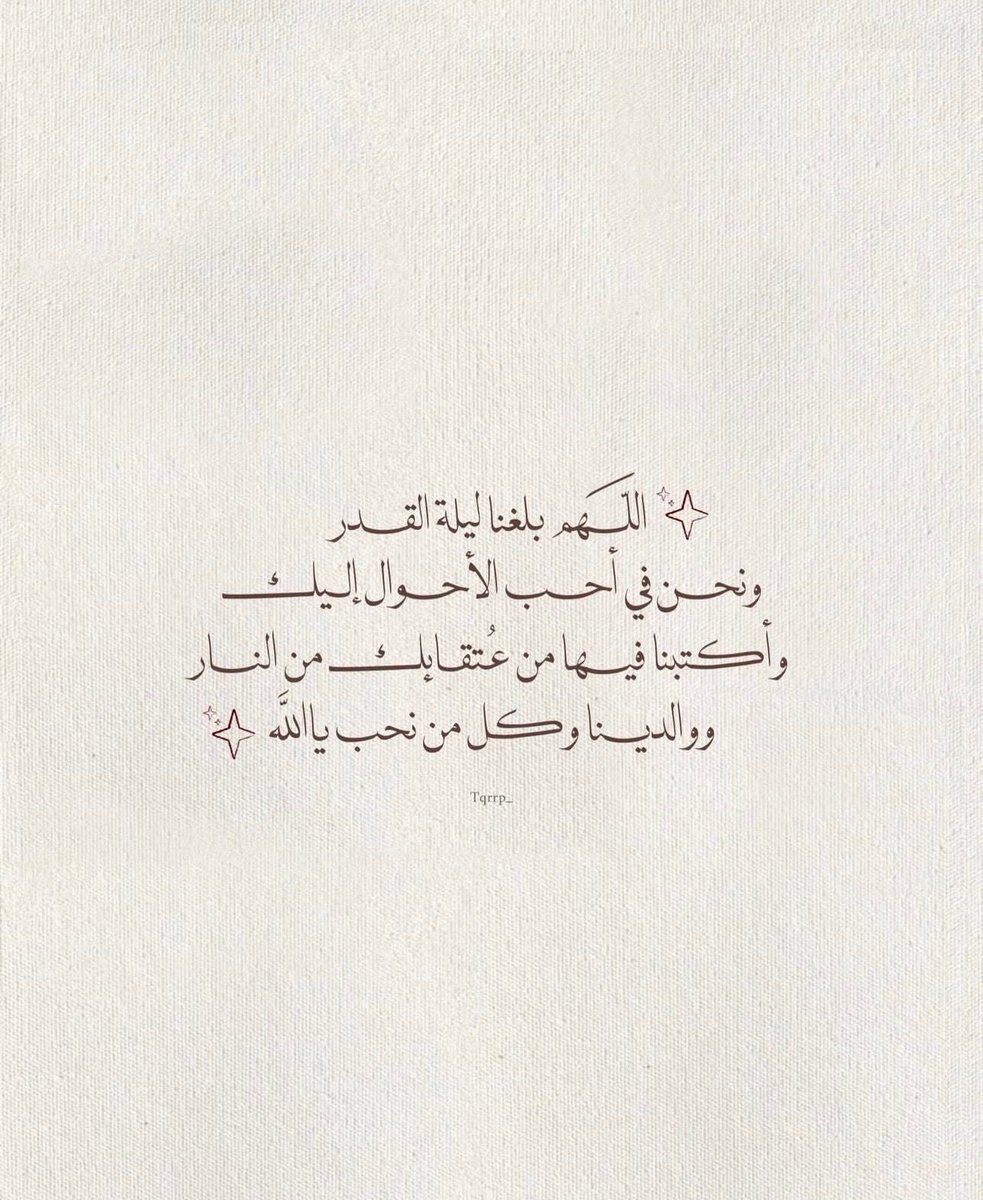 اللّـَهم بلغنا ليلة القـدر
ونحـن في أحـب الأحـوال إلـيك
وأكتبنا فيـها من عُـتقـاإك من النـار
ووالديـنا وكل من نحب ياالله
Tqrrp_